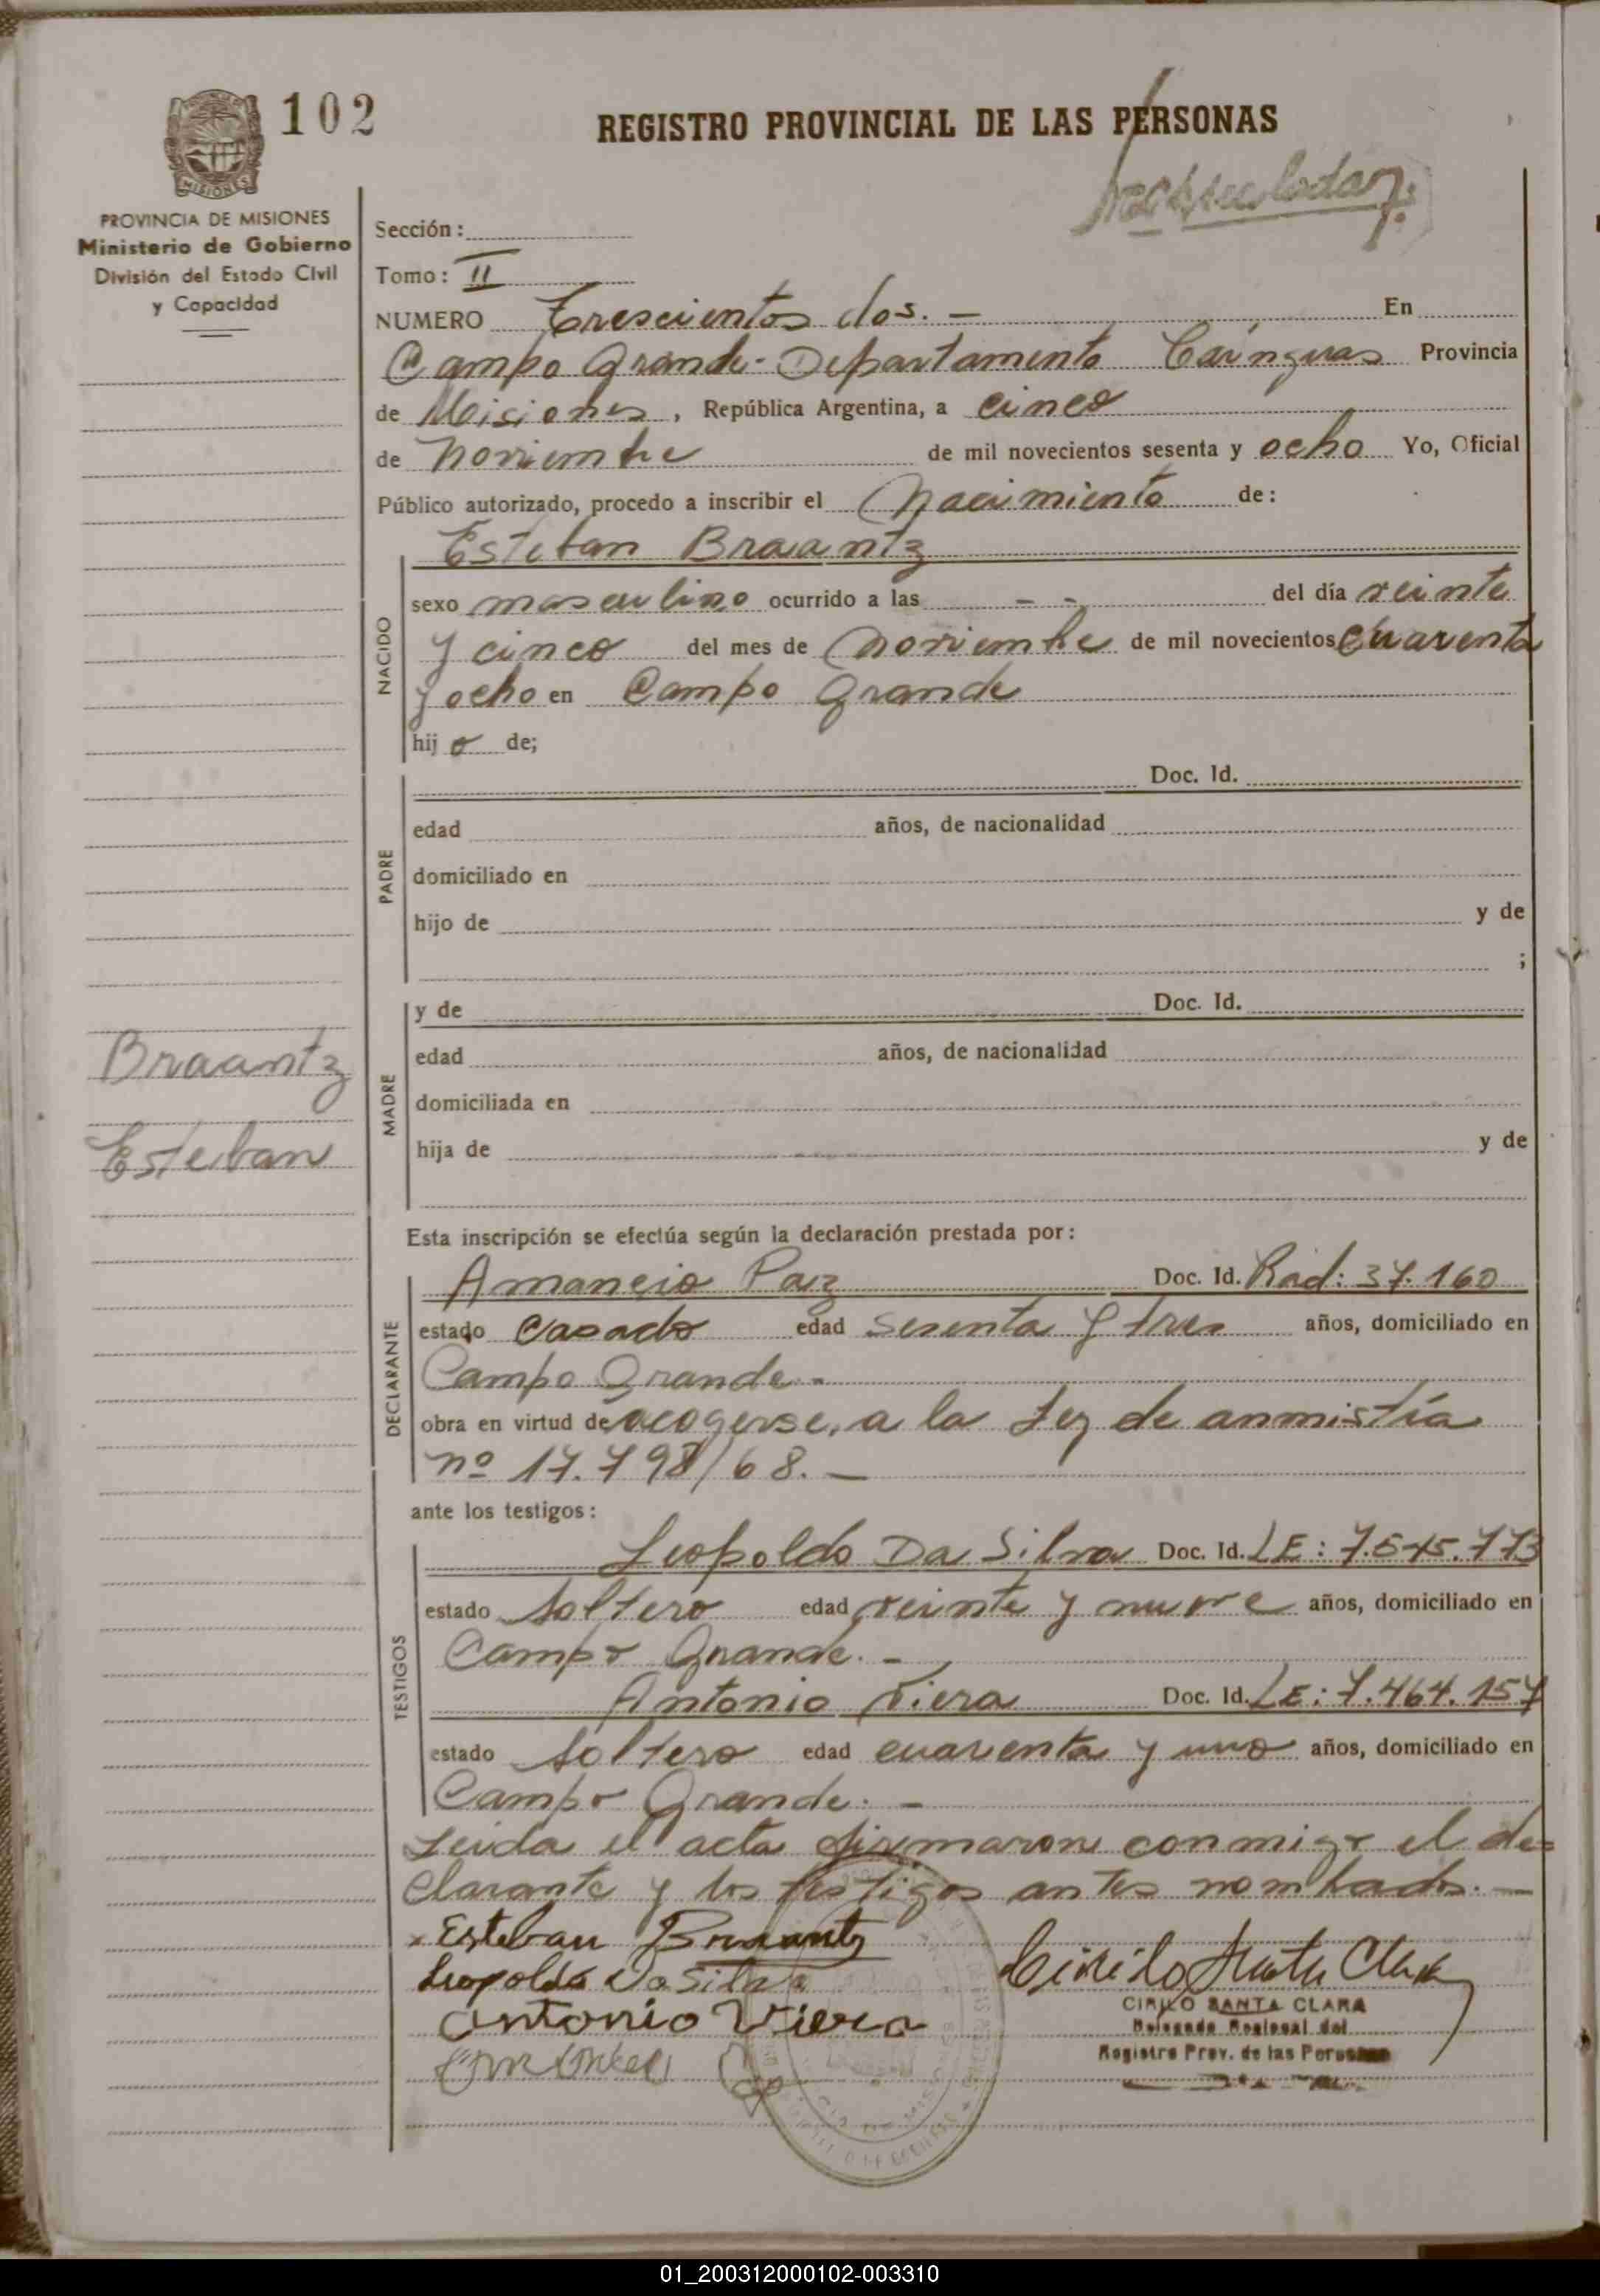 102
REGISTRO PROVINCIAL DE LAS PERSONAS
MISIONES
PROVINCIA DE MISIONES
Ministerio de Gobierno
División del Estado Civil
y Capacidad
Sección:
Tomo: II
NUMERO Trescientos dos. — En
Campo Grande - Departamento Cainguas Provincia
de Misiones, República Argentina, a cinco
de noviembre de mil novecientos sesenta y ocho Yo, Oficial
Público autorizado, procedo a inscribir el Nacimiento de:
Esteban Braantz
NACIDO
sexo masculino ocurrido a las - - del día veinte
y cinco del mes de noviembre de mil novecientos cuarenta
y ocho en Campo Grande
hij o de;
PADRE
Doc. Id.
edad años, de nacionalidad
domiciliado en
hijo de y de
;
MADRE
y de Doc. Id.
edad años, de nacionalidad
domiciliada en
hija de y de
Braantz
Esteban
Esta inscripción se efectúa según la declaración prestada por:
DECLARANTE
Amancio Paiz Doc. Id. Rad: 37.160
estado Casado edad sesenta y tres años, domiciliado en
Campo Grande.-
obra en virtud de acogerse, a la Ley de anmistía
nº 17.798/68. —
ante los testigos:
TESTIGOS
Leopoldo Da Silva Doc. Id. LE: 7.515.773
estado soltero edad veinte y nueve años, domiciliado en
Campo Grande. -
Antonio Viera Doc. Id. LE: 7.464.157
estado soltero edad cuarenta y uno años, domiciliado en
Campo Grande. —
Leida el acta firmaron conmigo el de=
clarante y los testigos antes nombados. —
Esteban Braantz
Leopoldo Da Silva
Antonio Viera
Cirilo Santa Clara
CIRILO SANTA CLARA
Delegado Regional del
Registro Prov. de las Personas
01_200312000102-003310